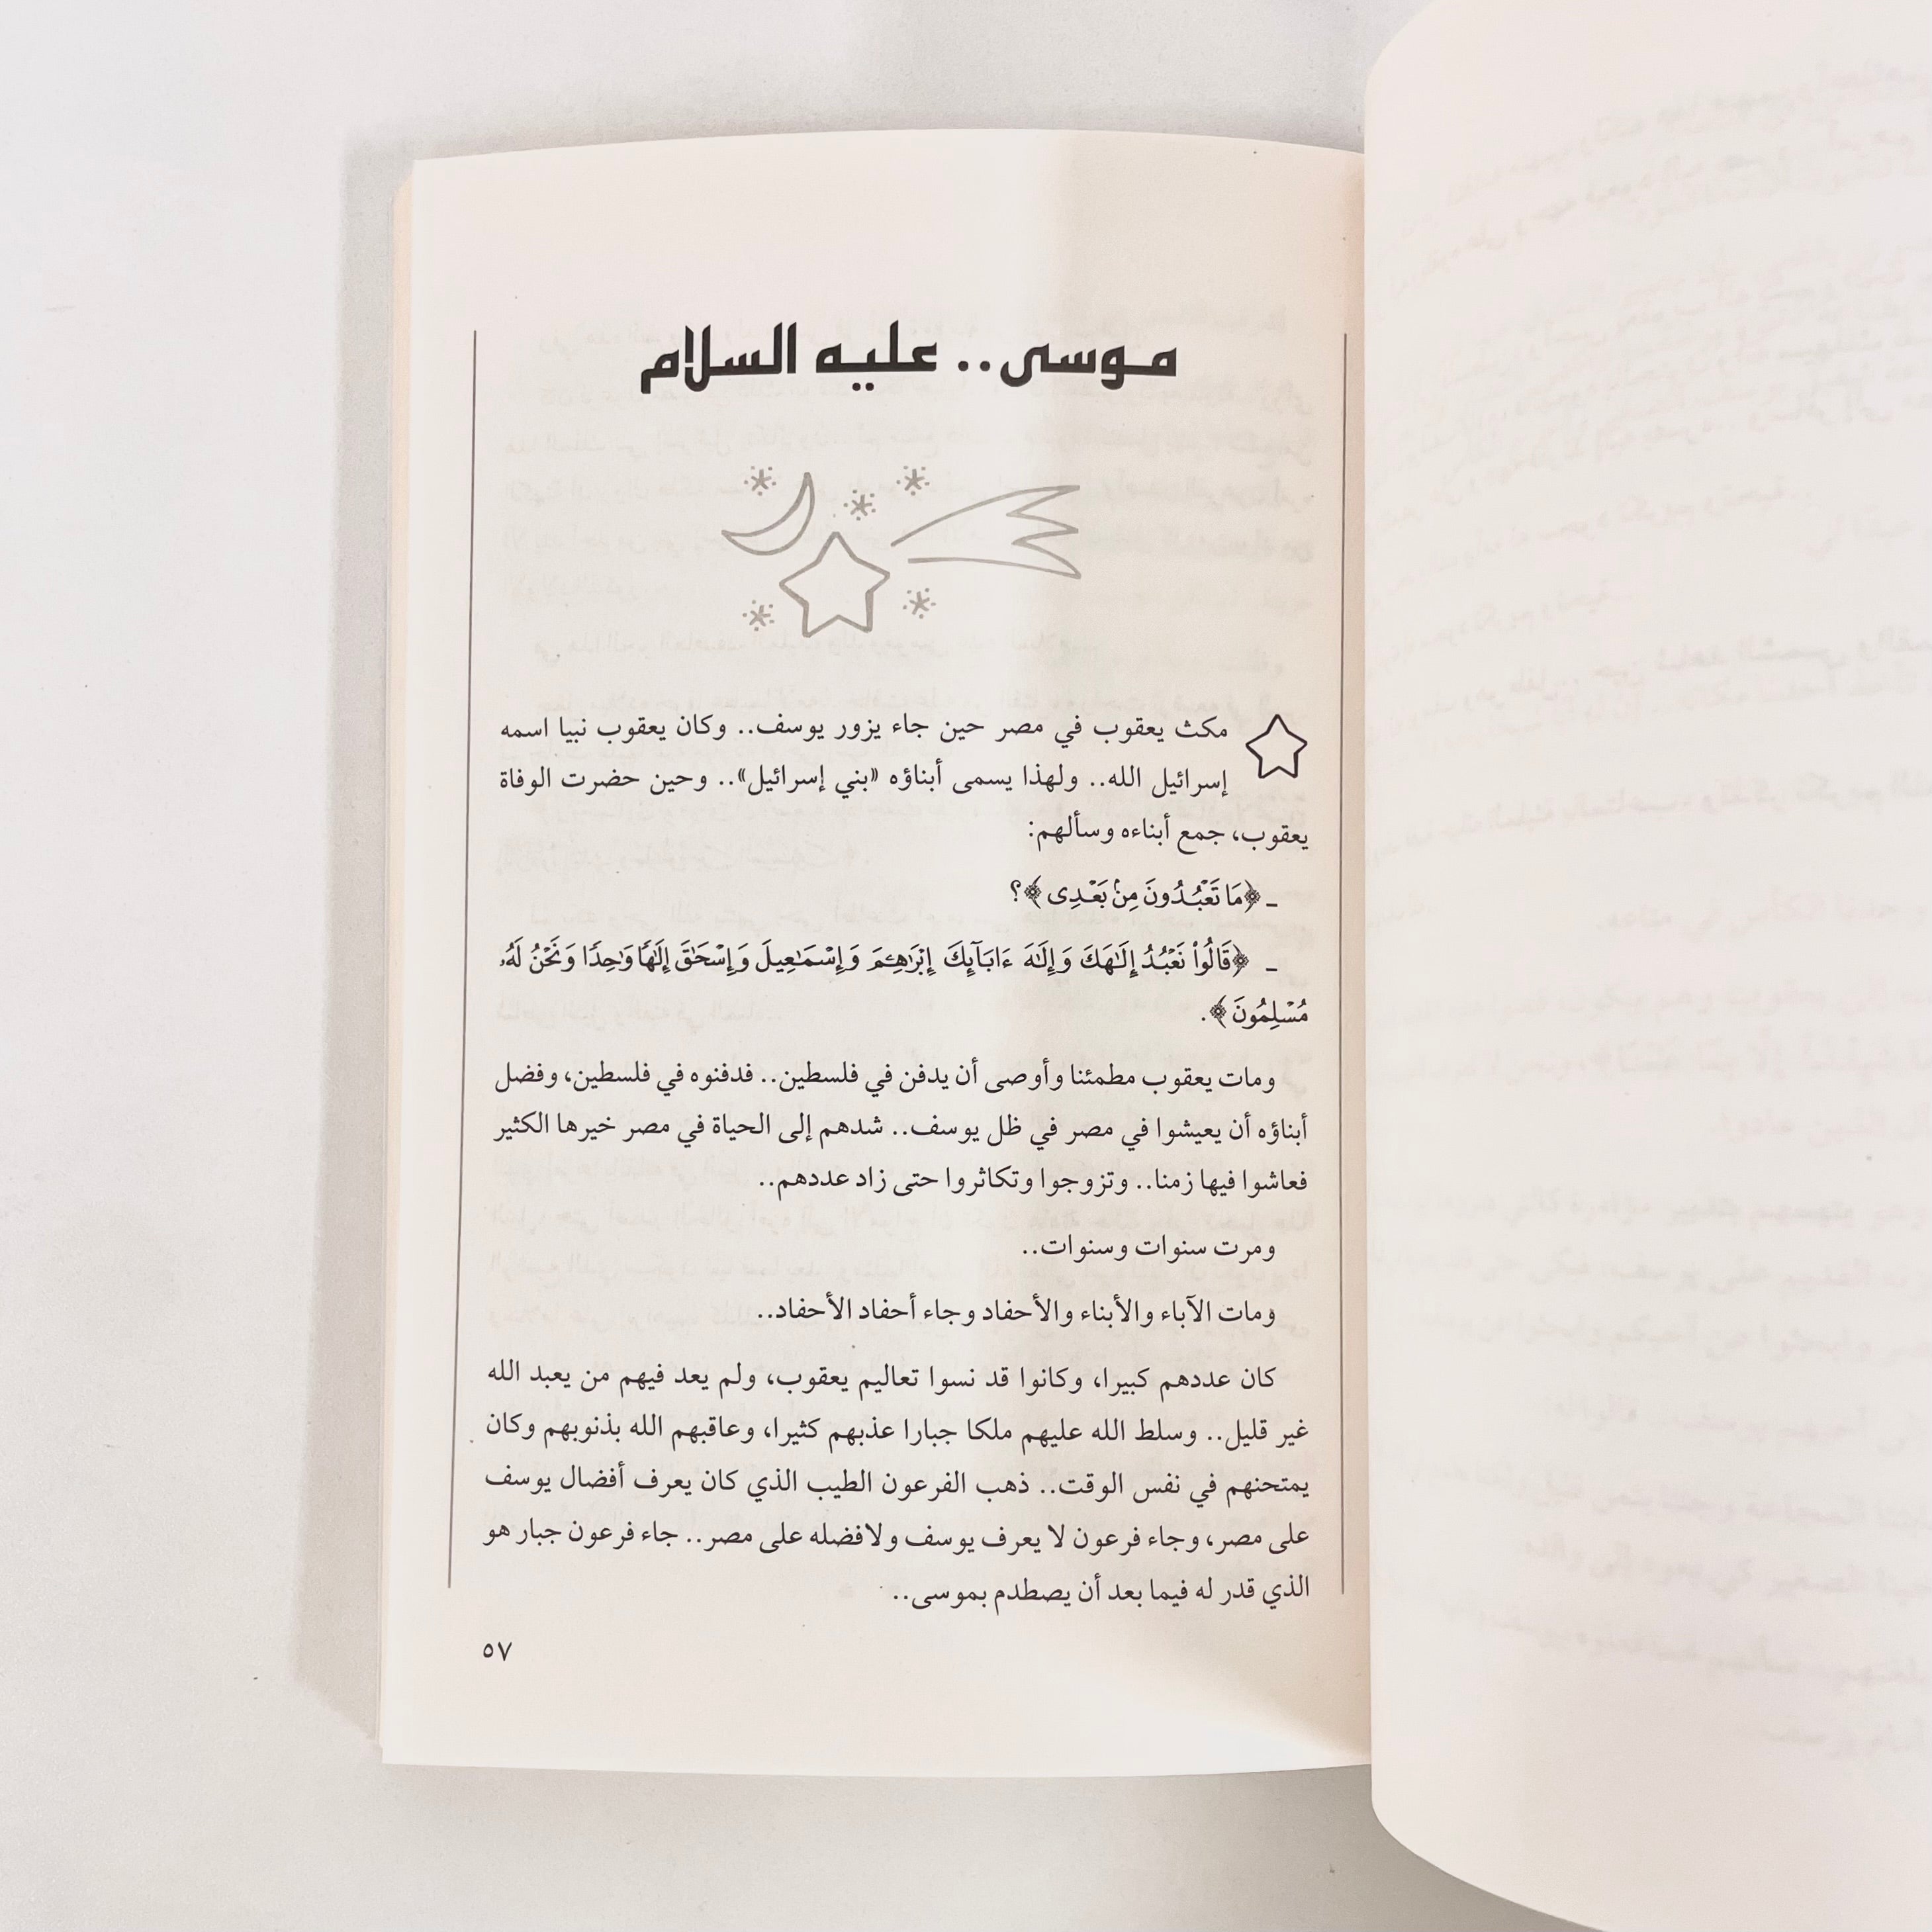 موسى.. عليه السلام
مكث يعقوب في مصر حين جاء يزور يوسف.. وكان يعقوب نبيا اسمه
إسرائيل الله.. ولهذا يسمى أبناؤه «بني إسرائيل».. وحين حضرت الوفاة
يعقوب، جمع أبناءه وسألهم:
ـ ﴿مَا تَعْبُدُونَ مِنۢ بَعْدِى﴾؟
ـ ﴿قَالُوا۟ نَعْبُدُ إِلَـٰهَكَ وَإِلَـٰهَ ءَابَآئِكَ إِبْرَٰهِـۧمَ وَإِسْمَـٰعِيلَ وَإِسْحَـٰقَ إِلَـٰهًا وَٰحِدًا وَنَحْنُ لَهُۥ
مُسْلِمُونَ﴾.
ومات يعقوب مطمئنا وأوصى أن يدفن في فلسطين.. فدفنوه في فلسطين، وفضل
أبناؤه أن يعيشوا في مصر في ظل يوسف.. شدهم إلى الحياة في مصر خيرها الكثير
فعاشوا فيها زمنا.. وتزوجوا وتكاثروا حتى زاد عددهم..
ومرت سنوات وسنوات..
ومات الآباء والأبناء والأحفاد وجاء أحفاد الأحفاد..
كان عددهم كبيرا، وكانوا قد نسوا تعاليم يعقوب، ولم يعد فيهم من يعبد الله
غير قليل.. وسلط الله عليهم ملكا جبارا عذبهم كثيرا، وعاقبهم الله بذنوبهم وكان
يمتحنهم في نفس الوقت.. ذهب الفرعون الطيب الذي كان يعرف أفضال يوسف
على مصر، وجاء فرعون لا يعرف يوسف ولافضله على مصر.. جاء فرعون جبار هو
الذي قدر له فيما بعد أن يصطدم بموسى..
٥٧